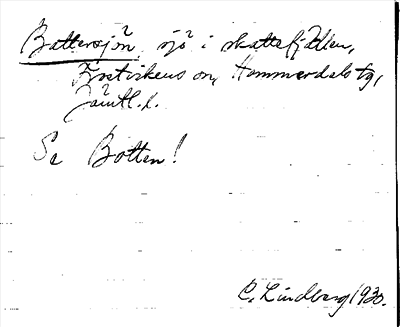 Battersjön sjö i skattefjällen,
Frostvikens sn, Hammerdals tg,
Jämtl. l.
Se Botten!
C. Lindberg 1930.